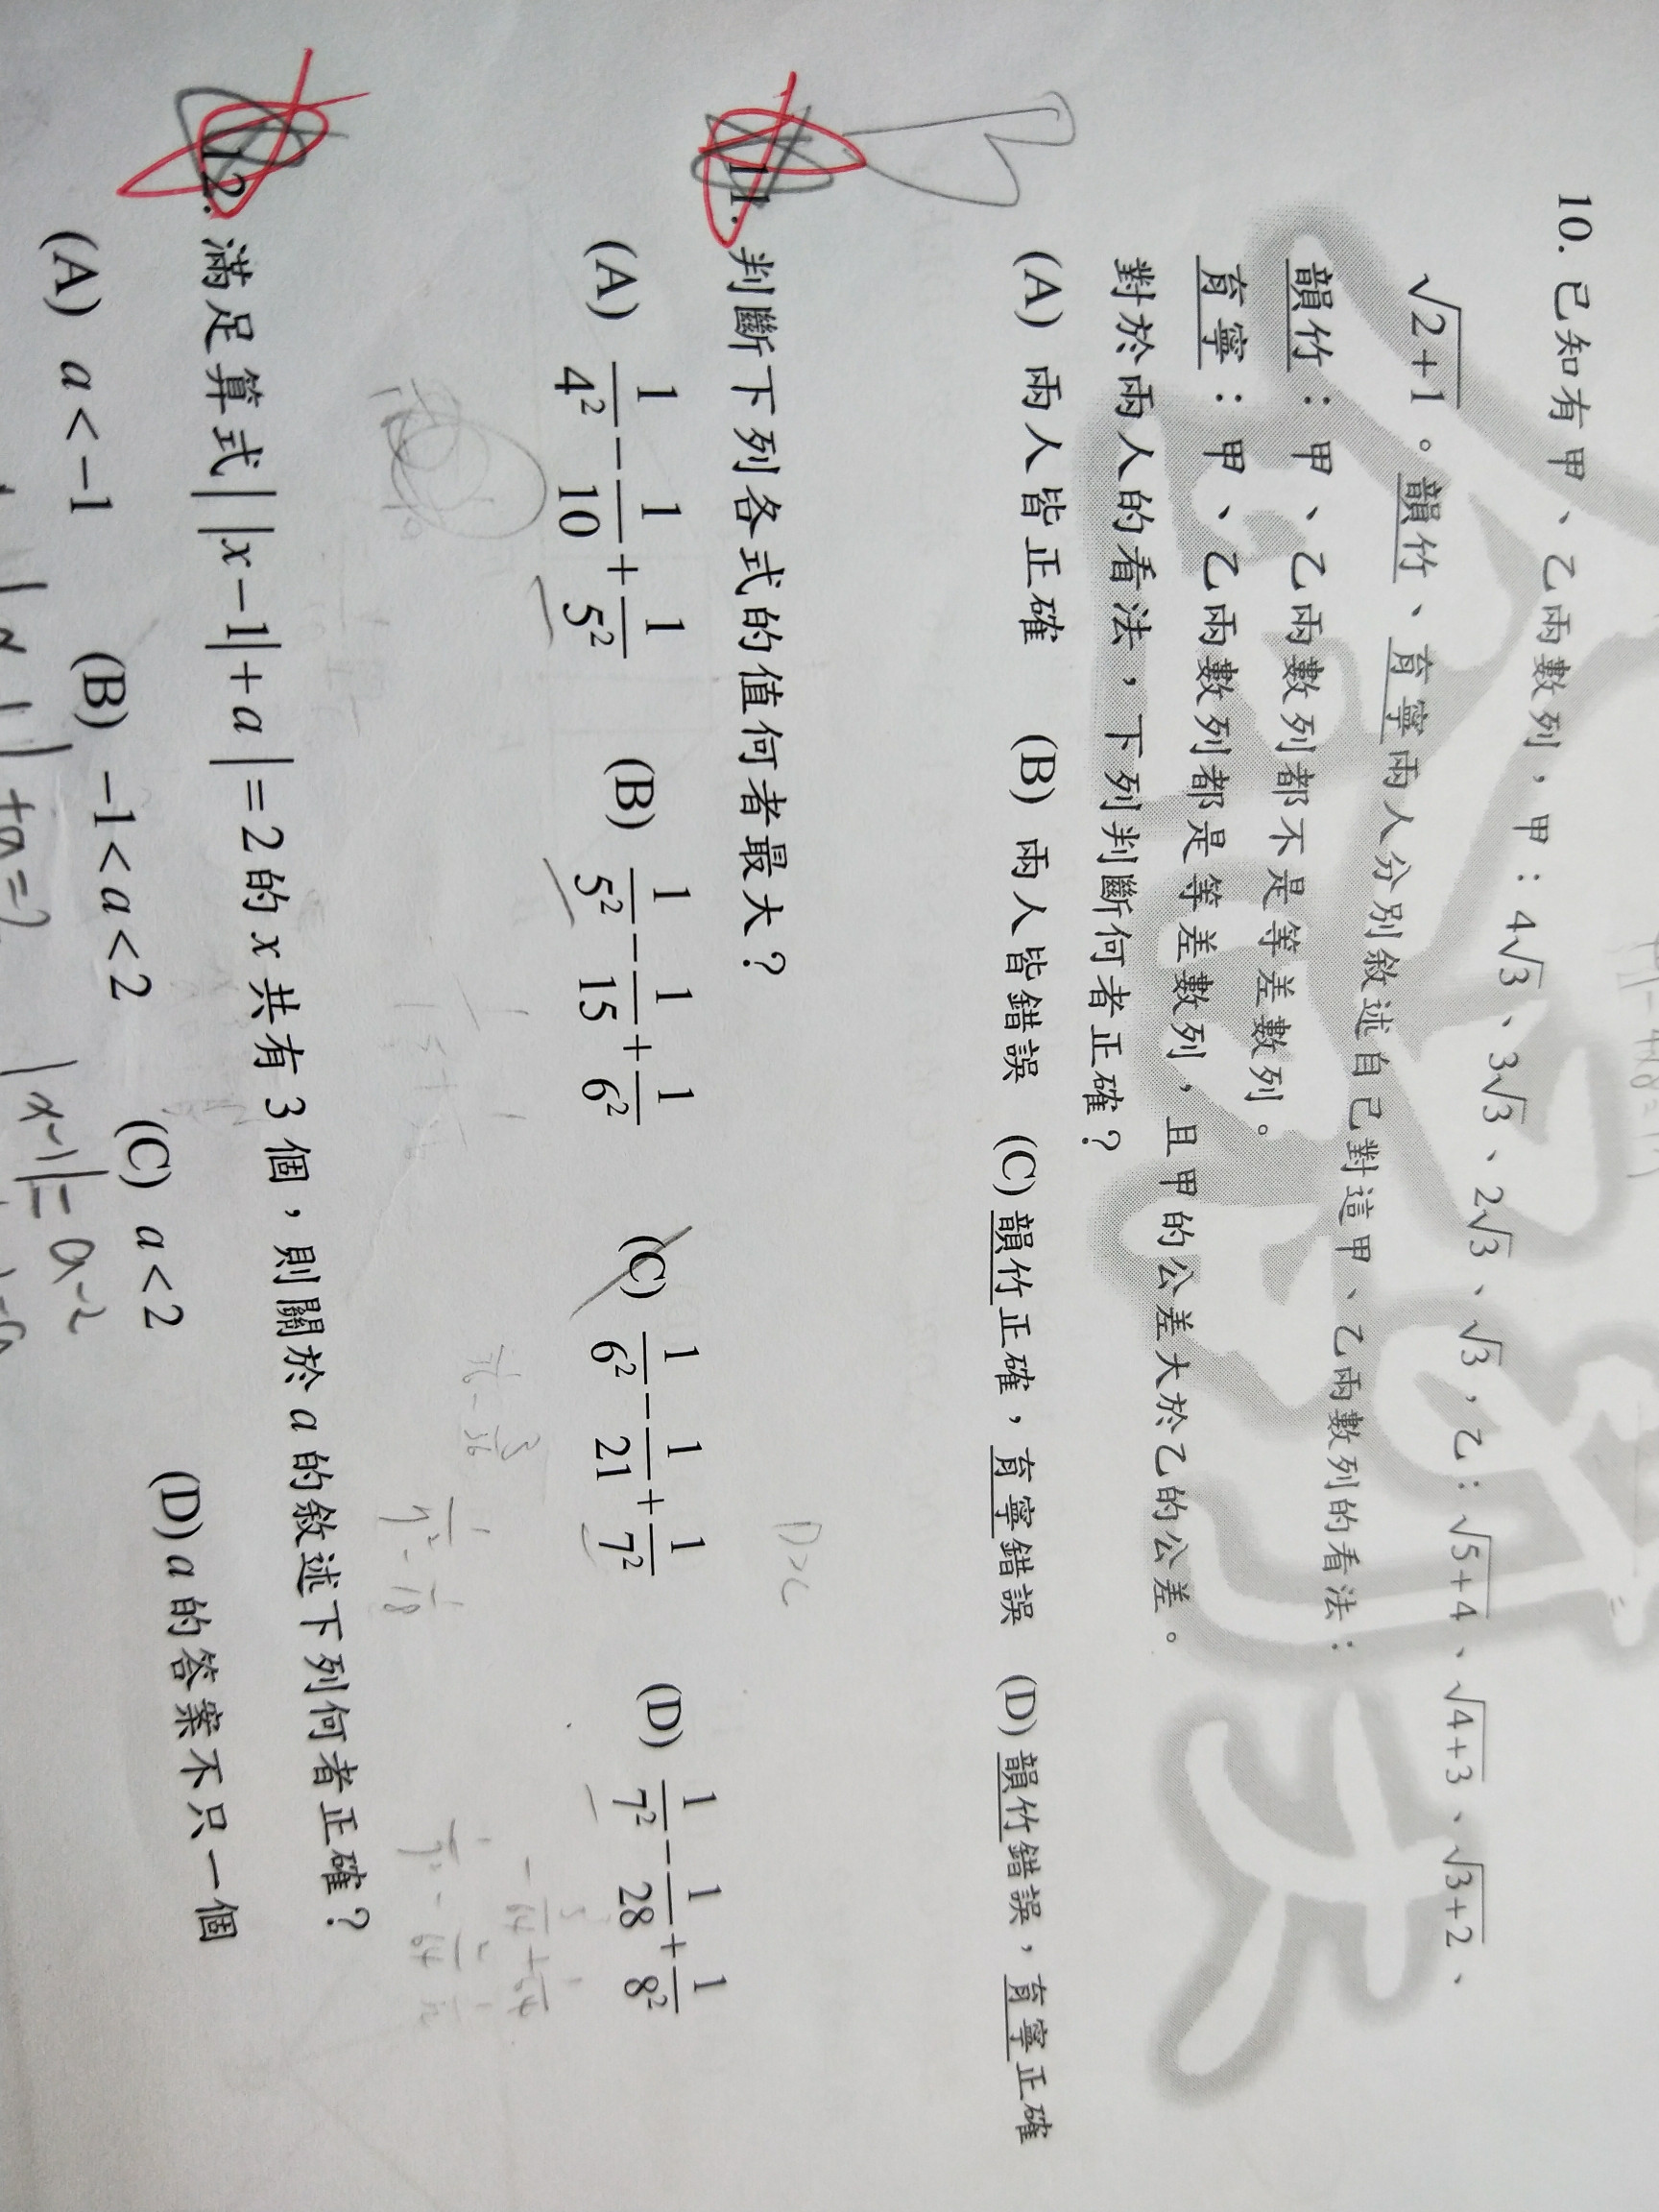 10. 已知有甲、乙兩數列，甲：4√3、3√3、2√3、√3，乙：√5+4、√4+3、√3+2、
√2+1。韻竹、育寧兩人分別敘述自己對這甲、乙兩數列的看法：
韻竹：甲、乙兩數列都不是等差數列。
育寧：甲、乙兩數列都是等差數列，且甲的公差大於乙的公差。
對於兩人的看法，下列判斷何者正確？
(A) 兩人皆正確 (B) 兩人皆錯誤 (C) 韻竹正確，育寧錯誤 (D) 韻竹錯誤，育寧正確
B
11. 判斷下列各式的值何者最大？
D>C
(A) 1/4² − 1/10 + 1/5² (B) 1/5² − 1/15 + 1/6² (C) 1/6² − 1/21 + 1/7² (D) 1/7² − 1/28 + 1/8²
12. 滿足算式||x−1|+a|=2的x共有3個，則關於a的敘述下列何者正確？
(A) a<−1 (B) −1<a<2 (C) a<2 (D) a的答案不只一個
|x-1|=a-2